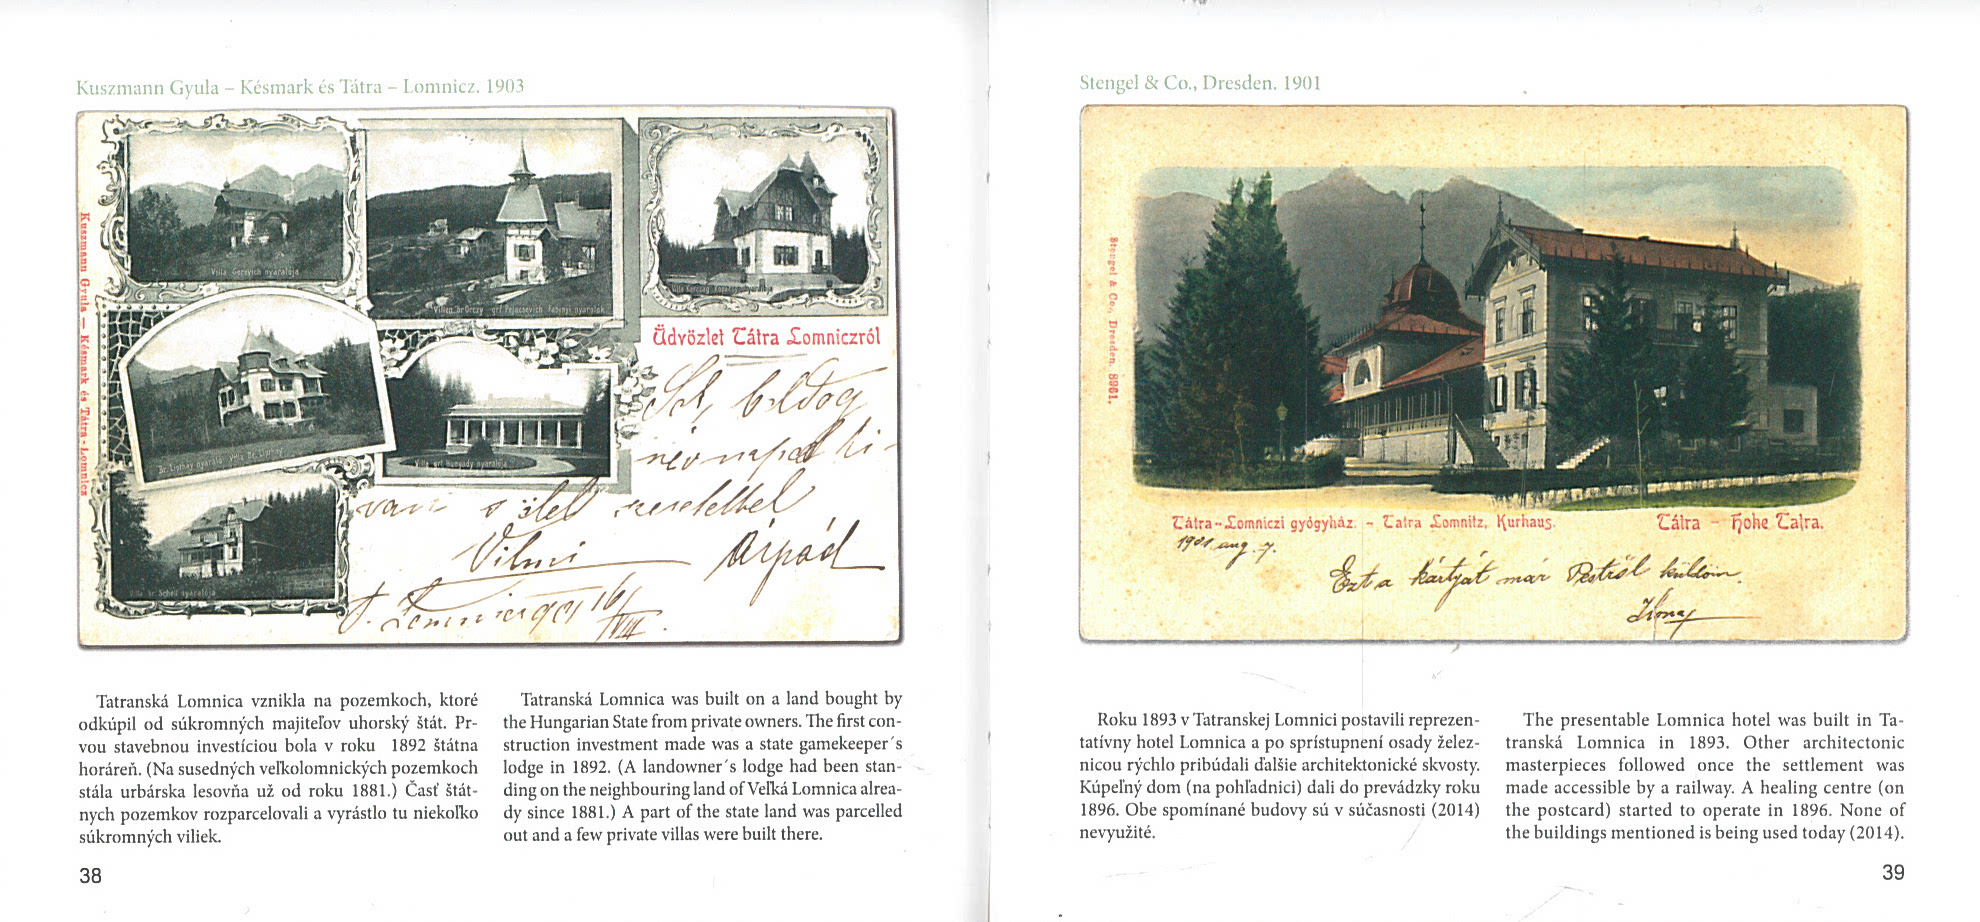 Kuszmann Gyula – Késmark és Tátra – Lomnicz. 1903
Kuszmann Gyula — Késmark és Tátra-Lomnicz
Villa Gerevich nyaralója
Villen Br Orczy grf Pejacsevich Fabinyi nyaralók
Villa
nyaralója
Üdvözlet Tátra Lomniczról
Br. Lipthay nyaraló villa Br. Liptay
Villa grf Hunyady nyaralója
Villa br Schell nyaralója
boldog
névnapot ki-
van
szeretettel
Vilmi Árpád
T. Lomnicz 901 16/VIII.
Tatranská Lomnica vznikla na pozemkoch, ktoré
odkúpil od súkromných majiteľov uhorský štát. Pr-
vou stavebnou investíciou bola v roku 1892 štátna
horáreň. (Na susedných veľkolomnických pozemkoch
stála urbárska lesovňa už od roku 1881.) Časť štát-
nych pozemkov rozparcelovali a vyrástlo tu niekoľko
súkromných viliek.
Tatranská Lomnica was built on a land bought by
the Hungarian State from private owners. The first con-
struction investment made was a state gamekeeper´s
lodge in 1892. (A landowner´s lodge had been stan-
ding on the neighbouring land of Veľká Lomnica alrea-
dy since 1881.) A part of the state land was parcelled
out and a few private villas were built there.
38
Stengel & Co., Dresden. 1901
Stengel & Co., Dresden. 8961.
Tátra-Lomniczi gyógyház. - Tatra Lomnitz, Kurhaus.
Tátra - Hohe Tatra.
1901. aug. 7.
Ezt a kártyát már Pestről küldöm.
Ilona
Roku 1893 v Tatranskej Lomnici postavili reprezen-
tatívny hotel Lomnica a po sprístupnení osady želez-
nicou rýchlo pribúdali ďalšie architektonické skvosty.
Kúpeľný dom (na pohľadnici) dali do prevádzky roku
1896. Obe spomínané budovy sú v súčasnosti (2014)
nevyužité.
The presentable Lomnica hotel was built in Ta-
transká Lomnica in 1893. Other architectonic
masterpieces followed once the settlement was
made accessible by a railway. A healing centre (on
the postcard) started to operate in 1896. None of
the buildings mentioned is being used today (2014).
39